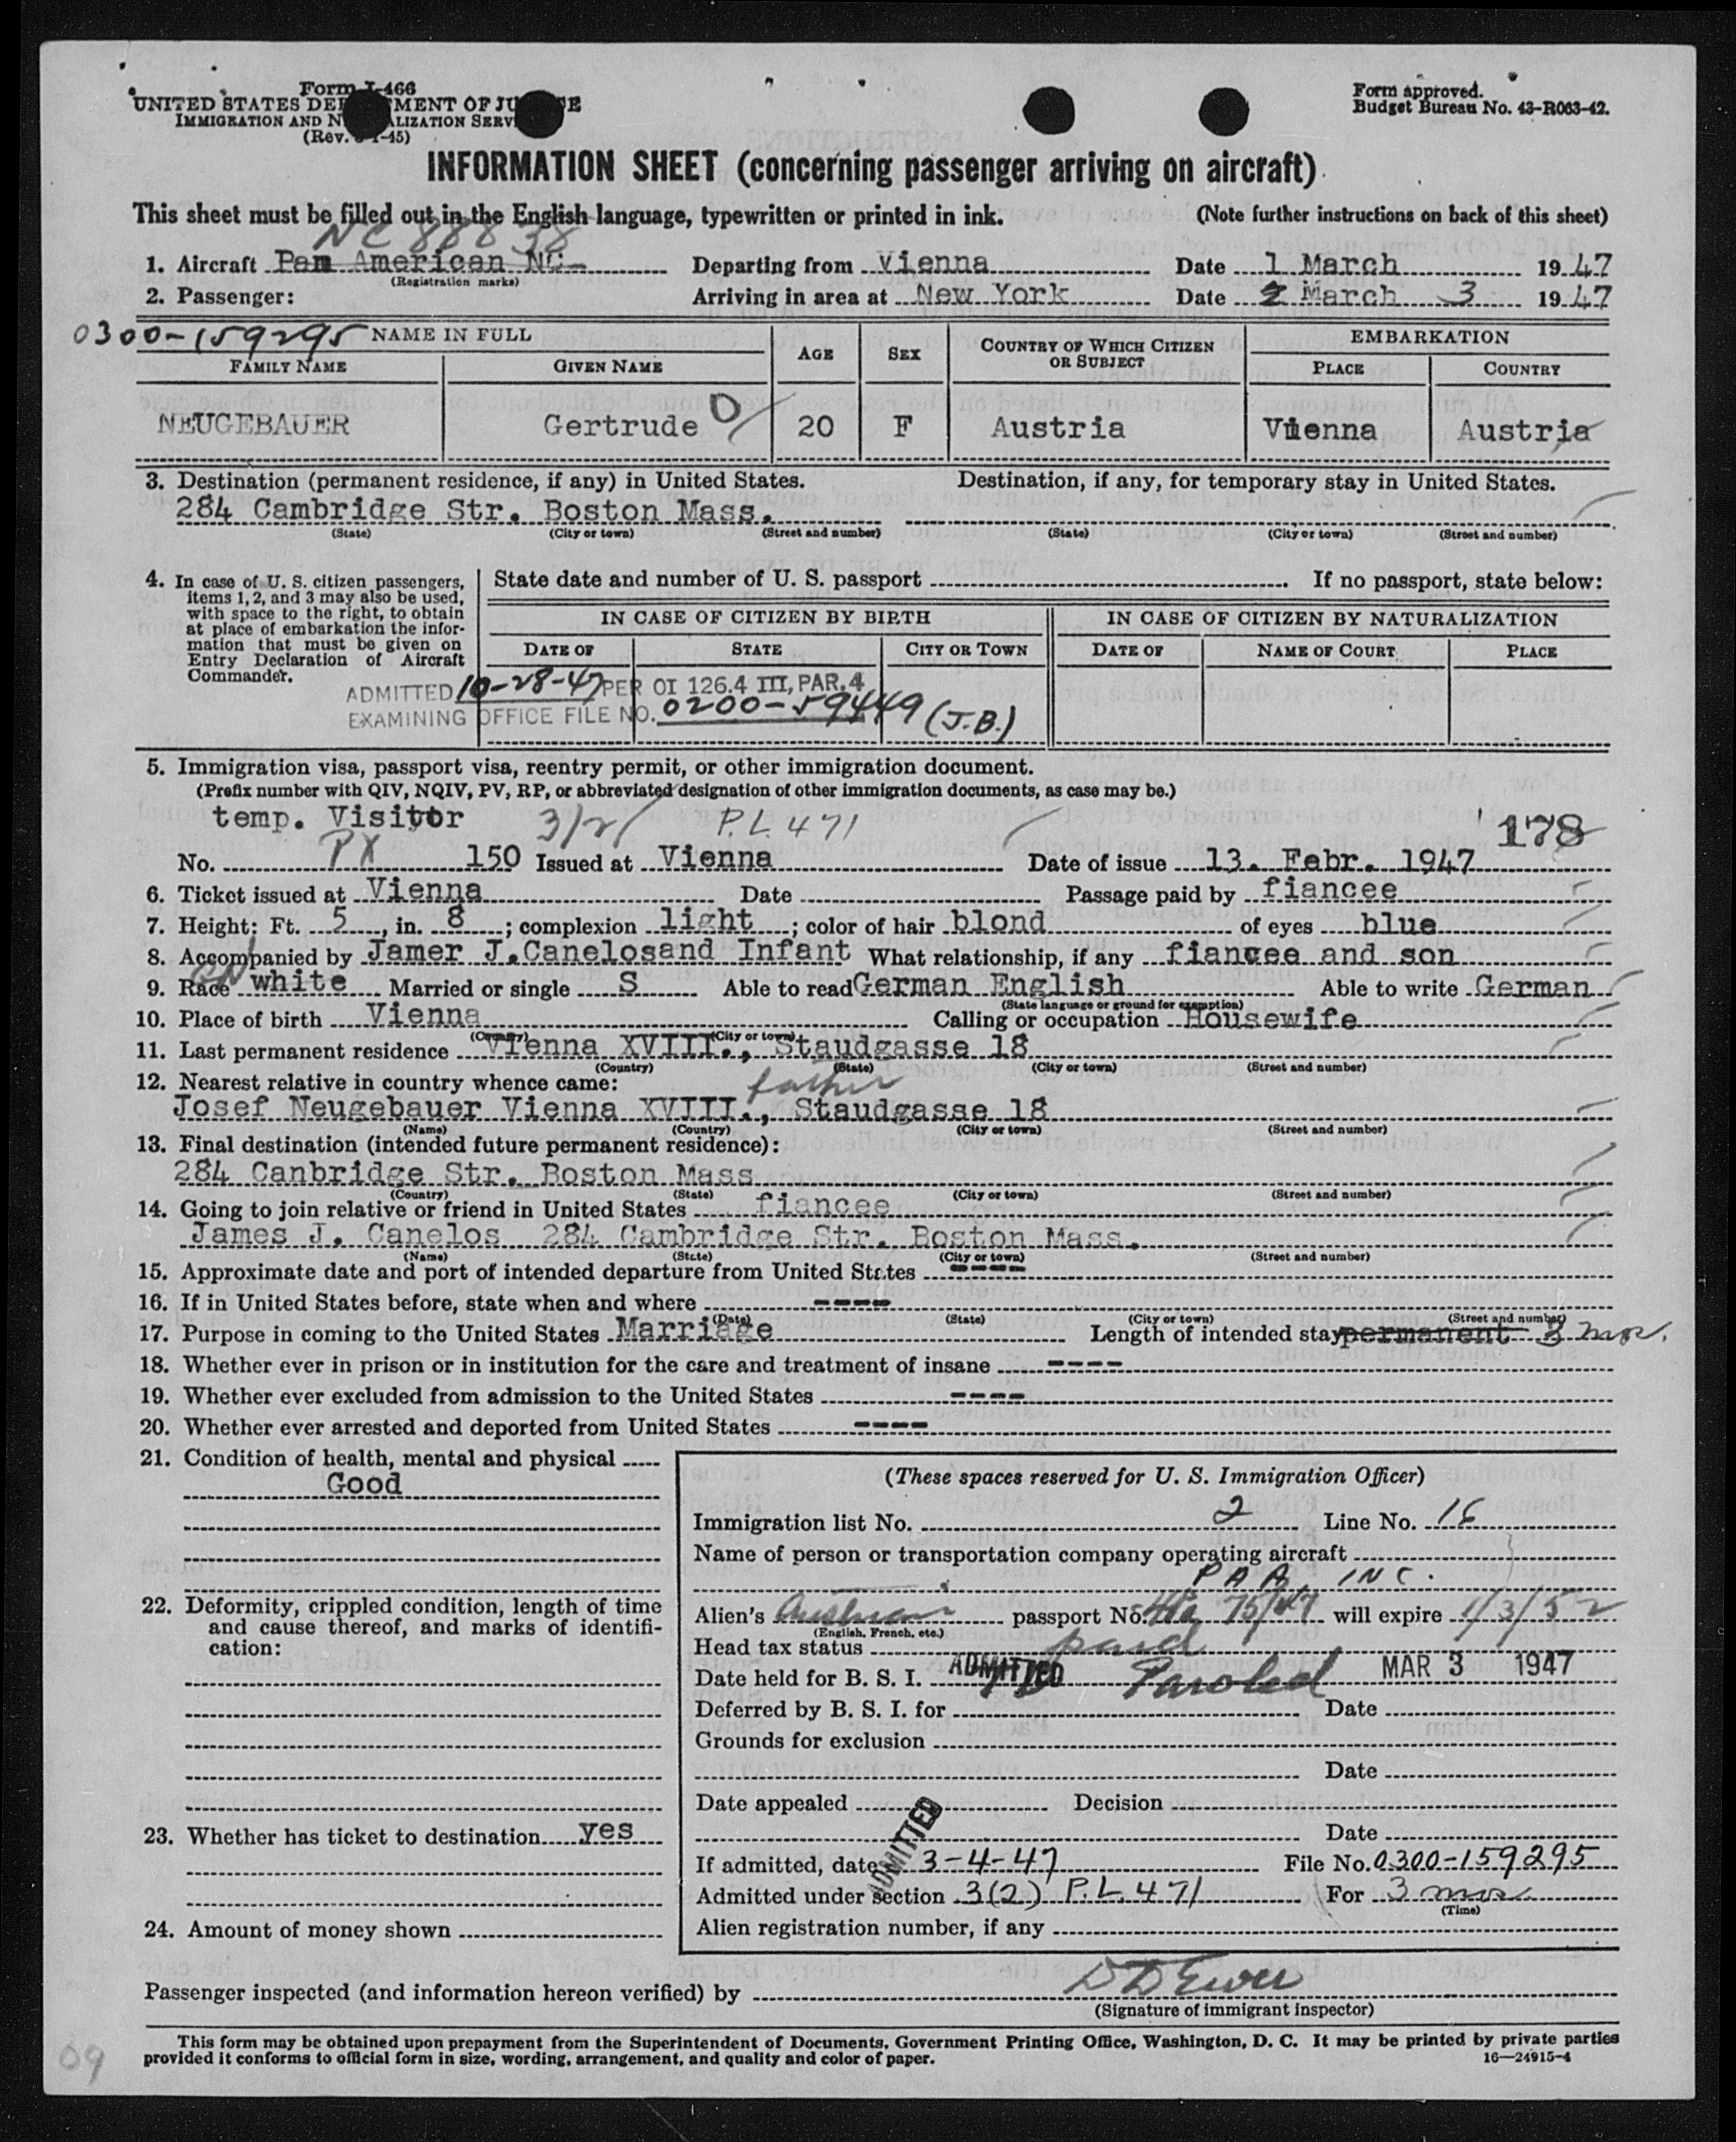 Form I-466
UNITED STATES DEPARTMENT OF JUSTICE
IMMIGRATION AND NATURALIZATION SERVICE
(Rev. -45)
Form approved.
Budget Bureau No. 43-R063-42.
INFORMATION SHEET (concerning passenger arriving on aircraft)
This sheet must be filled out in the English language, typewritten or printed in ink. (Note further instructions on back of this sheet)
NC 88838
1. Aircraft Pan American NC- Departing from Vienna Date 1 March 1947
(Registration marks)
2. Passenger: Arriving in area at New York Date 2 March 3 1947
0300-159295 NAME IN FULL AGE SEX COUNTRY OF WHICH CITIZEN OR SUBJECT EMBARKATION
FAMILY NAME GIVEN NAME PLACE COUNTRY
NEUGEBAUER Gertrude O 20 F Austria Vienna Austria
3. Destination (permanent residence, if any) in United States. Destination, if any, for temporary stay in United States.
284 Cambridge Str. Boston Mass.
(State) (City or town) (Street and number) (State) (City or town) (Street and number)
4. In case of U. S. citizen passengers, items 1, 2, and 3 may also be used, with space to the right, to obtain at place of embarkation the information that must be given on Entry Declaration of Aircraft Commander.
State date and number of U. S. passport If no passport, state below:
IN CASE OF CITIZEN BY BIRTH IN CASE OF CITIZEN BY NATURALIZATION
DATE OF STATE CITY OR TOWN DATE OF NAME OF COURT PLACE
ADMITTED 10-28-47 PER OI 126.4 III, PAR. 4
EXAMINING OFFICE FILE NO. 0200-59449 (J.B.)
5. Immigration visa, passport visa, reentry permit, or other immigration document.
(Prefix number with QIV, NQIV, PV, RP, or abbreviated designation of other immigration documents, as case may be.)
temp. Visitor 3/2/ P.L. 471 178
No. PX 150 Issued at Vienna Date of issue 13. Febr. 1947
6. Ticket issued at Vienna Date Passage paid by fiancee
7. Height: Ft. 5, in. 8; complexion light; color of hair blond of eyes blue
8. Accompanied by Jamer J.Canelosand Infant What relationship, if any fiancee and son
9. Race white Married or single S Able to read German English Able to write German
(State language or ground for exemption)
10. Place of birth Vienna Calling or occupation Housewife
(Country) (City or town)
11. Last permanent residence Vienna XVIII., Staudgasse 18
(Country) (State) (City or town) (Street and number)
12. Nearest relative in country whence came: father
Josef Neugebauer Vienna XVIII., Staudgasse 18
(Name) (Country) (City or town) (Street and number)
13. Final destination (intended future permanent residence):
284 Canbridge Str. Boston Mass
(Country) (State) (City or town) (Street and number)
14. Going to join relative or friend in United States fiancee
James J. Canelos 284 Cambridge Str. Boston Mass.
(Name) (State) (City or town) (Street and number)
15. Approximate date and port of intended departure from United States ----
16. If in United States before, state when and where ----
(Date) (State) (City or town) (Street and number)
17. Purpose in coming to the United States Marriage Length of intended stay permanent 3 mos.
18. Whether ever in prison or in institution for the care and treatment of insane ----
19. Whether ever excluded from admission to the United States ----
20. Whether ever arrested and deported from United States ----
21. Condition of health, mental and physical
Good
22. Deformity, crippled condition, length of time and cause thereof, and marks of identification:
23. Whether has ticket to destination yes
24. Amount of money shown
(These spaces reserved for U. S. Immigration Officer)
Immigration list No. 2 Line No. 16
Name of person or transportation company operating aircraft
P A A, INC.
Alien's Austrian passport No. 75/47 will expire 1/3/52
(English, French, etc.)
Head tax status paid
Date held for B. S. I. ADMITTED Paroled MAR 3 1947
Deferred by B. S. I. for Date
Grounds for exclusion
Date
Date appealed Decision
ADMITTED
Date
If admitted, date 3-4-47 File No. 0300-159295
Admitted under section 3(2) P.L. 471 For 3 mos
(Time)
Alien registration number, if any
Passenger inspected (and information hereon verified) by
(Signature of immigrant inspector)
This form may be obtained upon prepayment from the Superintendent of Documents, Government Printing Office, Washington, D. C. It may be printed by private parties
provided it conforms to official form in size, wording, arrangement, and quality and color of paper. 16—24915-4
09